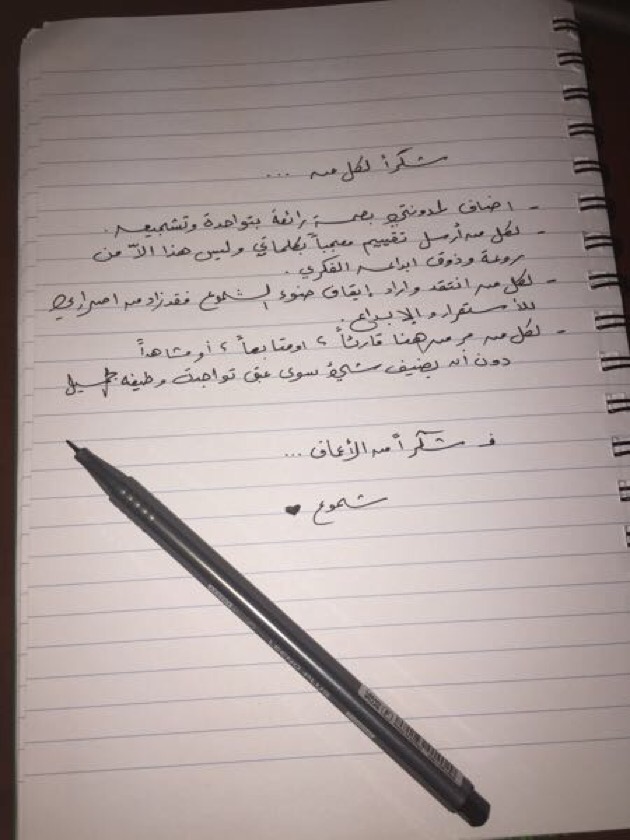 شكراً لكل من ...
- اضاف لمدونتي بصمة رائعة بتواجدة وتشجيعه.
- لكل من أرسل تقييم معجباً بكلماتي وليس هذا الآ من
روعة وذوق ابداعه الفكري.
- لكل من انتقد واراد إيقاف ضوء الشموع فقد زاد من اصراري
للأستمرار والإبداع.
- لكل من مر من هنا قارئاً، او متابعاً، أو مشاهداً
دون أن يضيف شيئ سوى عبق تواجده وطيفه الجميل
فـ شكراً من الأعماق ...
شموع ♥